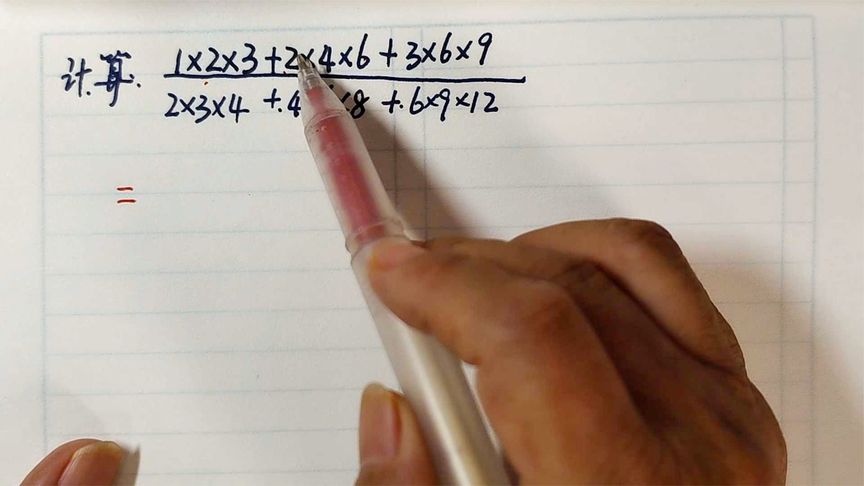 计算: 1×2×3+2×4×6+3×6×9
2×3×4+4×8+6×9×12
=